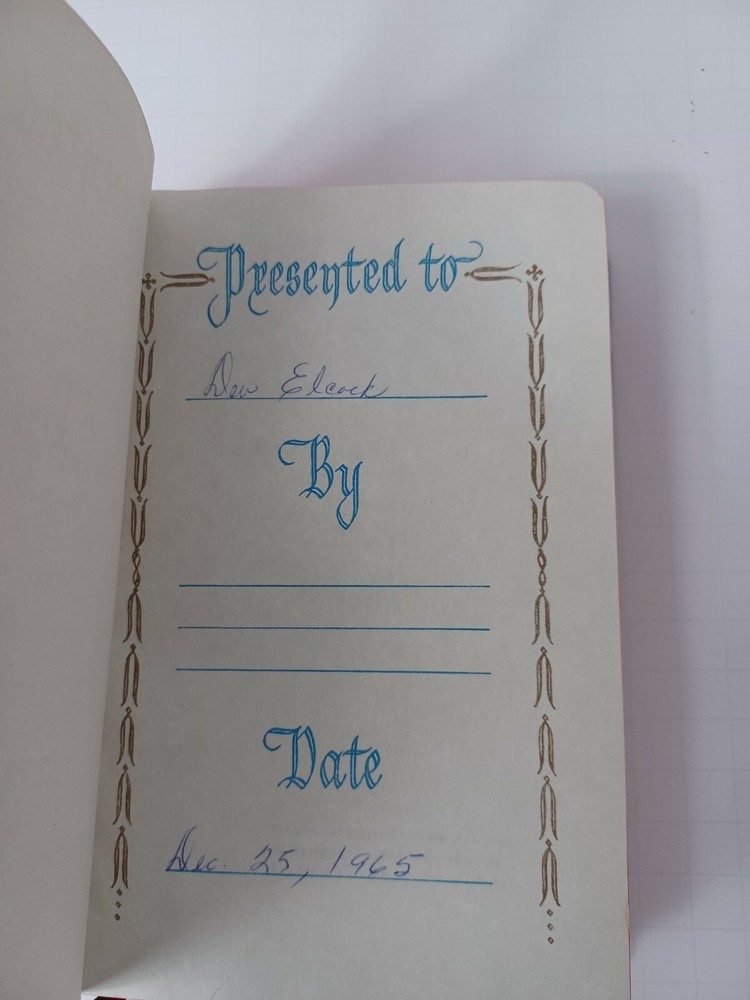 Presented to
Dew Elcock
By
Date
Dec. 25, 1965